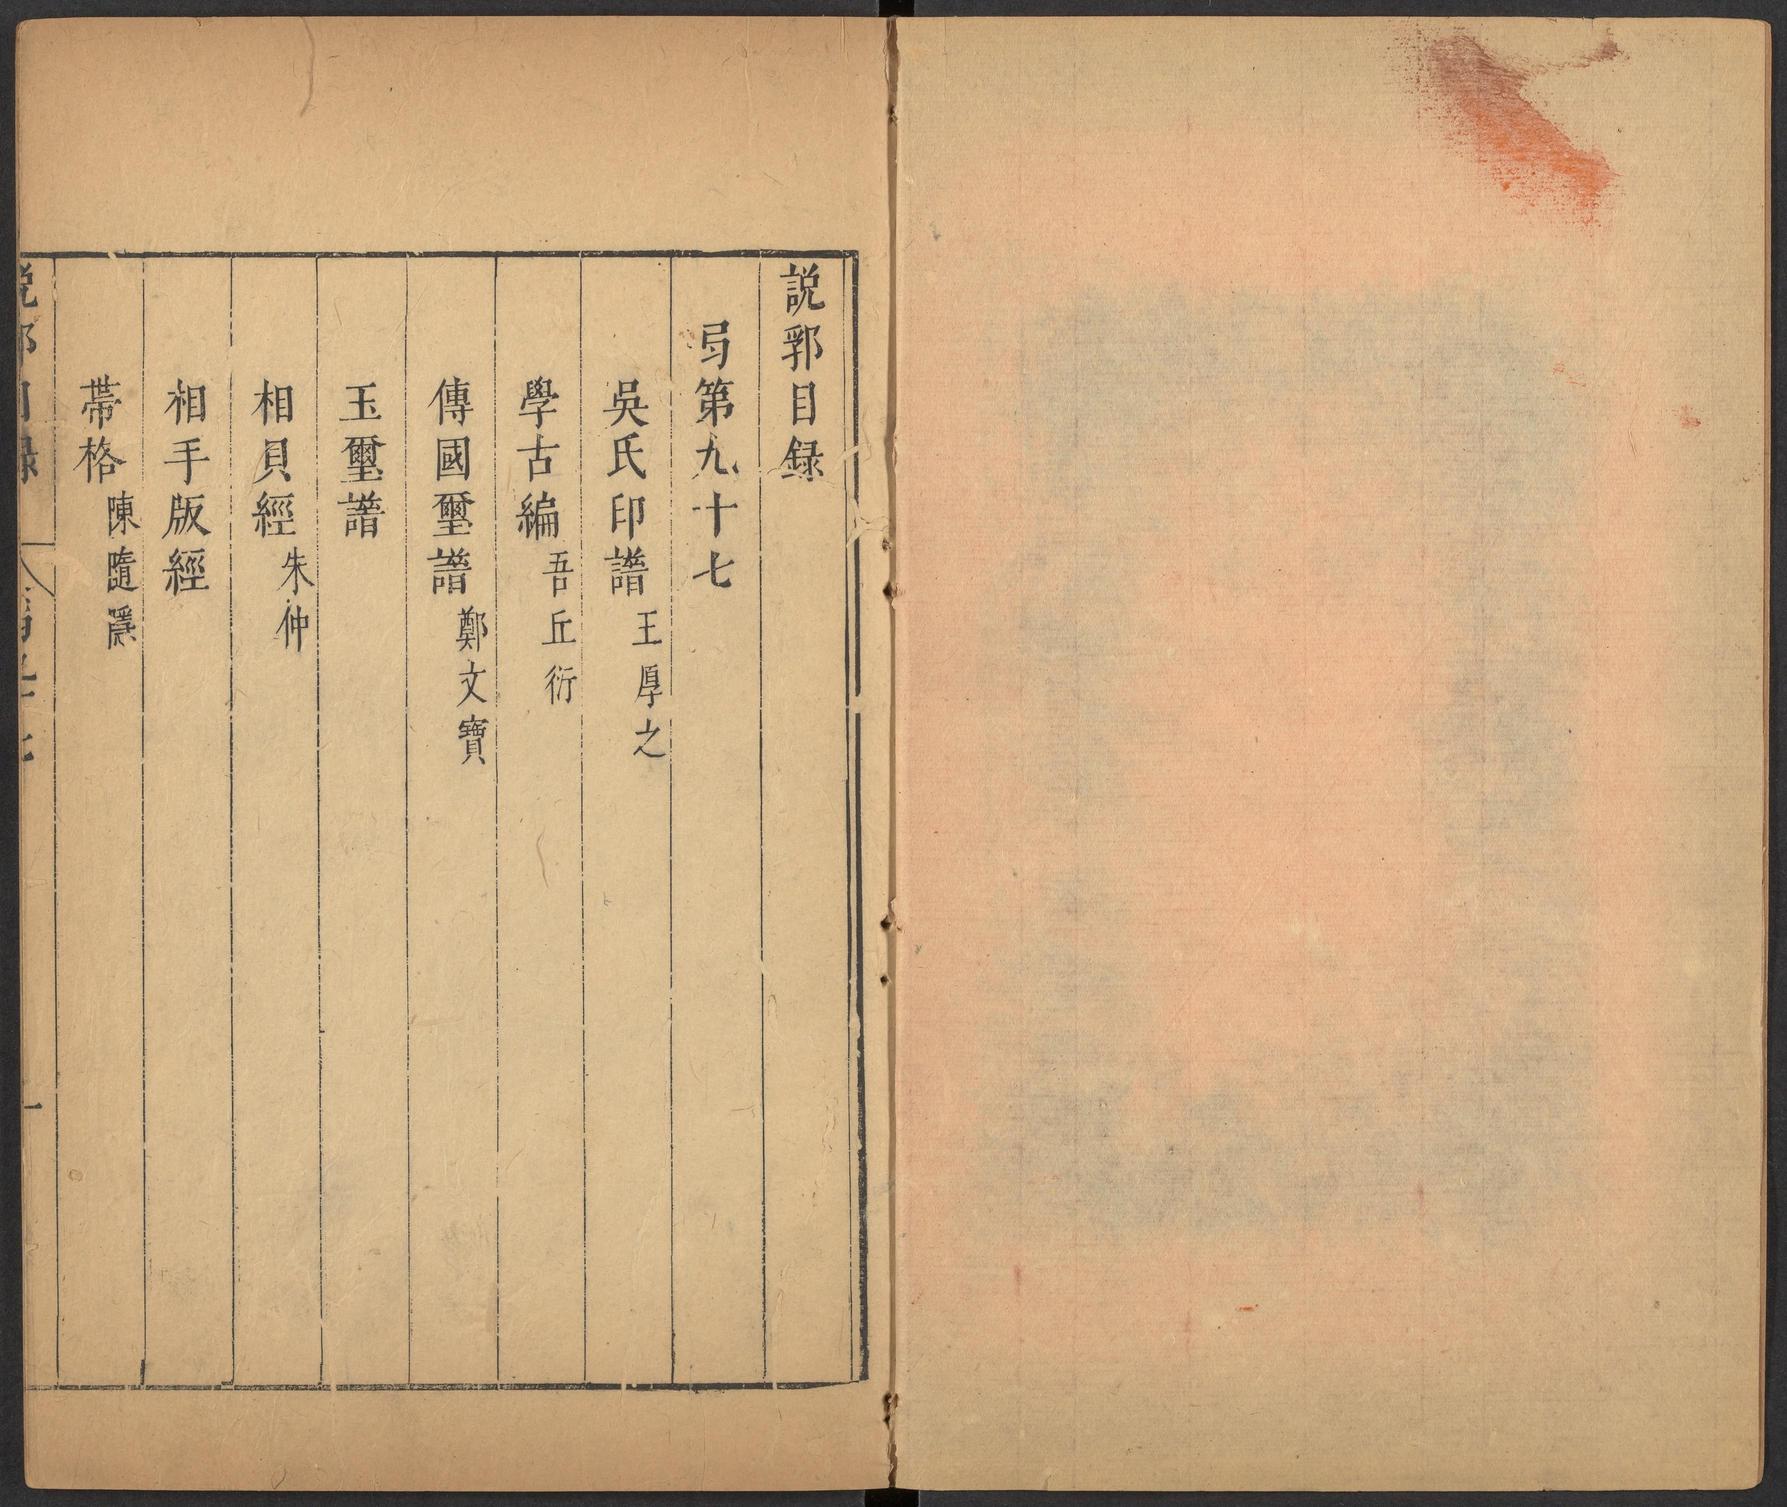 說郛目録
弓第九十七
吳氏印譜王厚之
學古編吾丘衍
傳國璽譜鄭文寶
玉璽譜
相貝經朱仲
相手版經
帶格陳隨隱